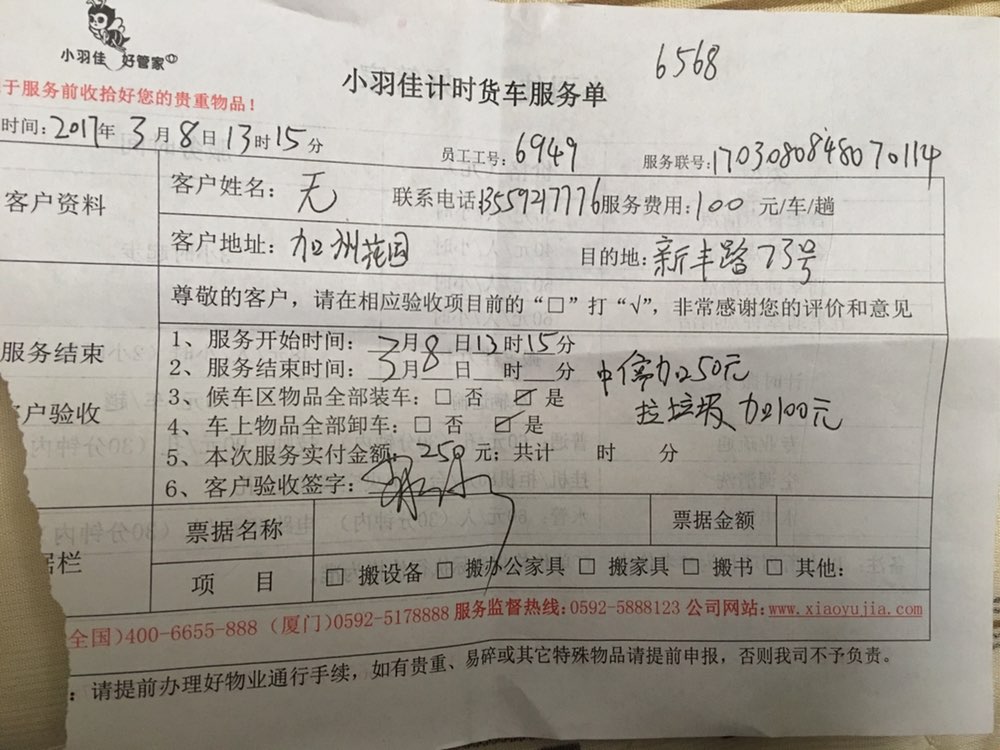 小羽佳 好管家
6568
小羽佳计时货车服务单
于服务前收拾好您的贵重物品！
时间：2017年3月8日13时15分
员工工号：6949
服务联号：170308084807 0114
客户资料
客户姓名：无 联系电话：13559217776 服务费用：100元/车/趟
客户地址：加州花园 目的地：新丰路73号
尊敬的客户，请在相应验收项目前的“□”打“√”，非常感谢您的评价和意见
服务结束
客户验收
1、服务开始时间：3月8日13时15分
2、服务结束时间：3月8日 时 分
3、候车区物品全部装车：□ 否 ☑ 是
4、车上物品全部卸车：□ 否 ☑ 是
5、本次服务实付金额：250元；共计 时 分
6、客户验收签字：
加50元
拉垃圾加100元
据栏
票据名称 票据金额
项 目 □ 搬设备 □ 搬办公家具 □ 搬家具 □ 搬书 □ 其他：
全国)400-6655-888 (厦门)0592-5178888 服务监督热线：0592-5888123 公司网站：www.xiaoyujia.com
：请提前办理好物业通行手续，如有贵重、易碎或其它特殊物品请提前申报，否则我司不予负责。